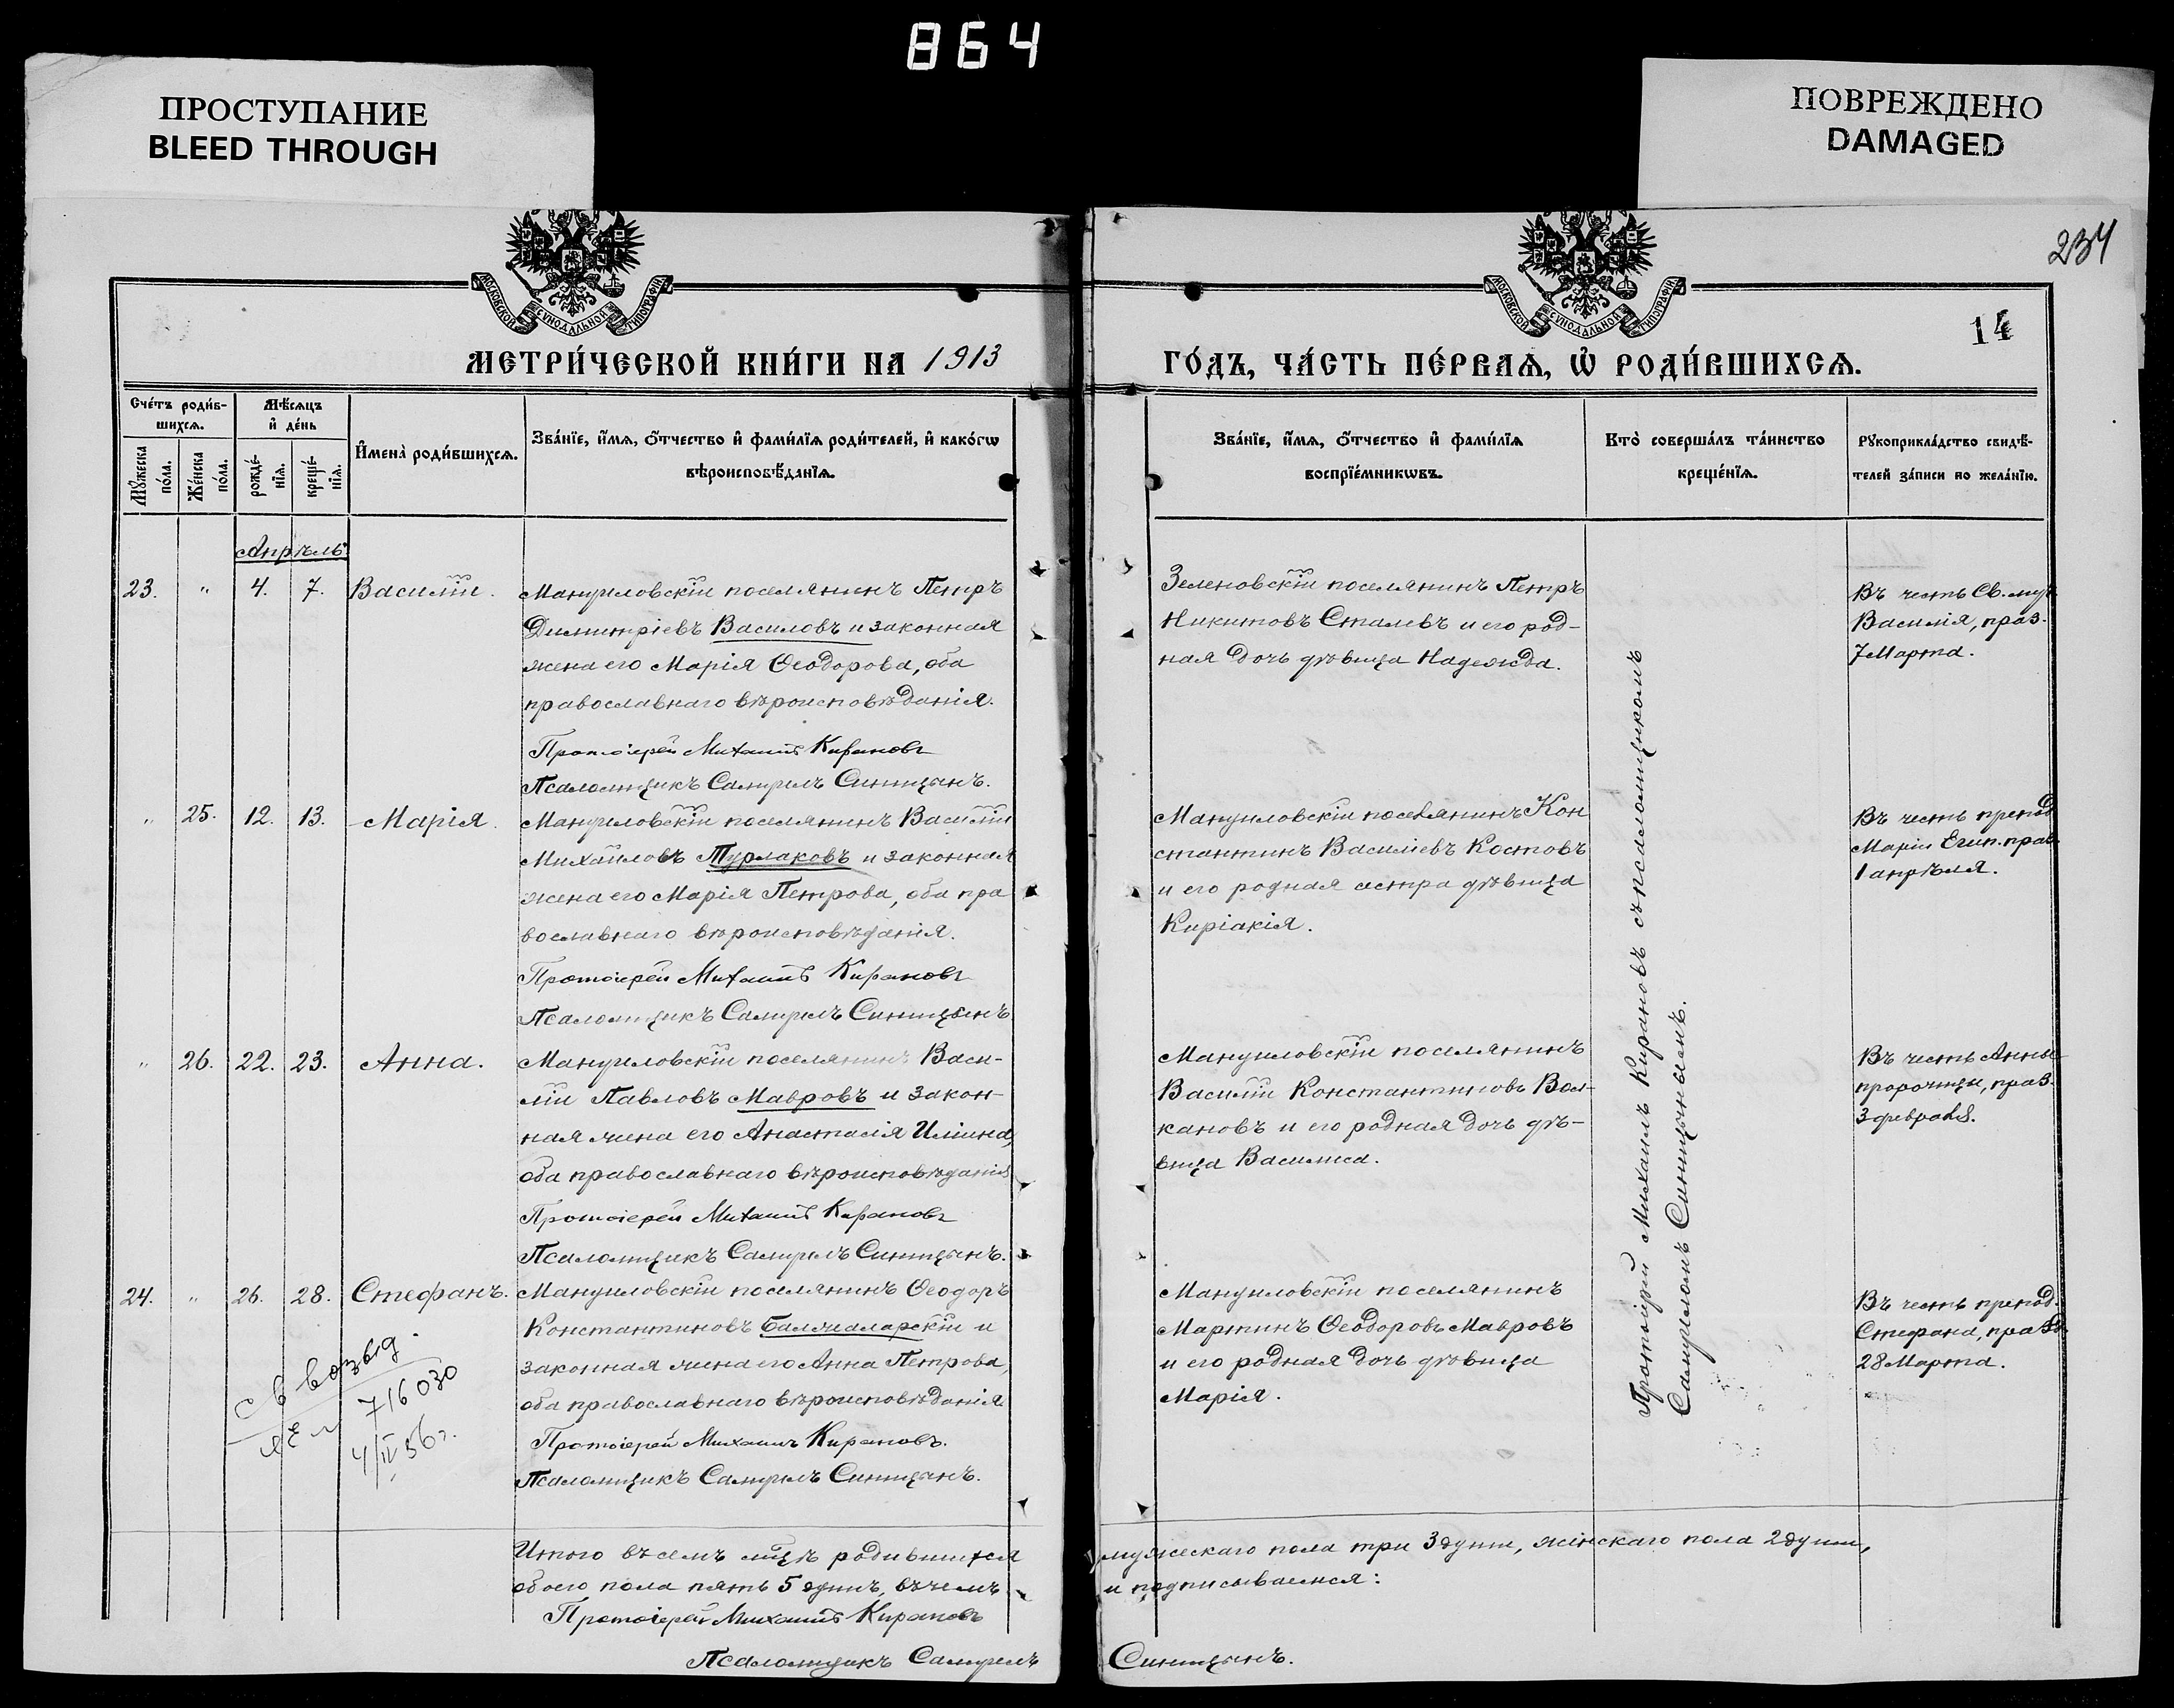 864
ПРОСТУПАНИЕ
BLEED THROUGH
ПОВРЕЖДЕНО
DAMAGED
234
14
МОСКОВСКОЙ СѴНОДАЛЬНОЙ ТИПОГРАФІИ
МОСКОВСКОЙ СѴНОДАЛЬНОЙ ТИПОГРАФІИ
МЕТРИ́ЧЕСКОЙ КНИ́ГИ НА 1913
ГО́ДЪ, ЧА́СТЬ ПЕ́РВАѦ, Ѡ҆ РОДИ́ВШИХСѦ.
Сче́тъ роди́в-
шихсѧ.
Мѣ́сѧцъ
и҆ де́нь
Мꙋ́жеска по́ла.
Же́нска по́ла.
рожде́-
нїѧ.
креще́-
нїѧ.
И҆мена̀ роди́вшихсѧ.
Зва́нїе, и҆́мѧ, ѻ҆́тчество и҆ фами́лїѧ роди́телей, и҆ како́гѡ
вѣроисповѣ́данїѧ.
Зва́нїе, и҆́мѧ, ѻ҆́тчество и҆ фами́лїѧ
воспрїе́мникѡвъ.
Кто̀ соверша́лъ та́инство
креще́нїѧ.
Рꙋкоприкла́дство свидѣ́-
телей за́писи по жела́нїю.
Апрѣль
23. " 4. 7. Василій.
Мануиловскій поселянинъ Петръ
Димитріевъ Василовъ и законная
жена его Марія Ѳеодорова, оба
православнаго вѣроисповѣданія.
Протоіерей Михаилъ Кирановъ
Псаломщикъ Самуилъ Синицынъ.
Зеленовскій поселянинъ Петръ
Никитовъ Сталевъ и его род-
ная дочь дѣвица Надежда.
Въ честь Св. муч.
Василія, праз.
7 Марта.
" 25. 12. 13. Марія.
Мануиловскій поселянинъ Василій
Михайловъ Турлаковъ и законная
жена его Марія Петрова, оба пра
вославнаго вѣроисповѣданія.
Протоіерей Михаилъ Кирановъ
Псаломщикъ Самуилъ Синицынъ
Мануиловскій поселянинъ Кон
стантинъ Василіевъ Костовъ
и его родная сестра дѣвица
Киріакія.
Въ честь препод.
Маріи Егип. праз.
1 апрѣля.
" 26. 22. 23. Анна.
Мануиловскій поселянинъ Васи-
лій Павловъ Мавровъ и закон-
ная жена его Анастасія Иліина,
оба православнаго вѣроисповѣданія
Протоіерей Михаилъ Кирановъ
Псаломщикъ Самуилъ Синицынъ.
Мануиловскій поселянинъ
Василій Константиновъ Вол-
кановъ и его родная дочь дѣ-
вица Василиса.
Въ честь Анны
пророчицы, праз.
3 февраля.
24. " 26. 28. Стефанъ.
Мануиловскій поселянинъ Ѳеодоръ
Константиновъ Балжаларскій и
законная жена его Анна Петрова,
оба православнаго вѣроисповѣданія
Протоіерей Михаилъ Кирановъ.
Псаломщикъ Самуилъ Синицынъ.
Мануиловскій поселянинъ
Мартинъ Ѳеодоровъ Мавровъ
и его родная дочь дѣвица
Марія.
Въ честь препод.
Стефана, празд.
28 Марта.
Протоіерей Михаилъ Кирановъ съ псаломщикомъ
Самуиломъ Синицынымъ.
716030
4/IV 56 г.
Итого въ семъ м-цѣ родившихся
обоего пола пять 5 душъ, въ чемъ
мужескаго пола три 3 души, женскаго пола 2 души,
и подписываемся:
Протоіерей Михаилъ Кирановъ
Псаломщикъ Самуилъ Синицынъ.